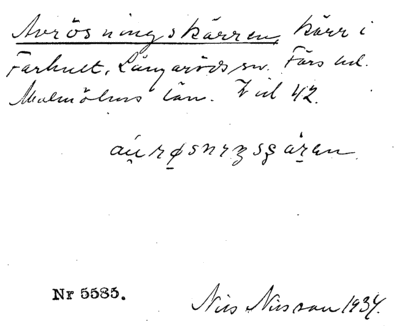 Avrösningskärren, kärr i
Farhult, Långaröds sn. Färs hd.
Malmöhus län. V id 42.
Nr 5585.
Nils Nilsson 1934.